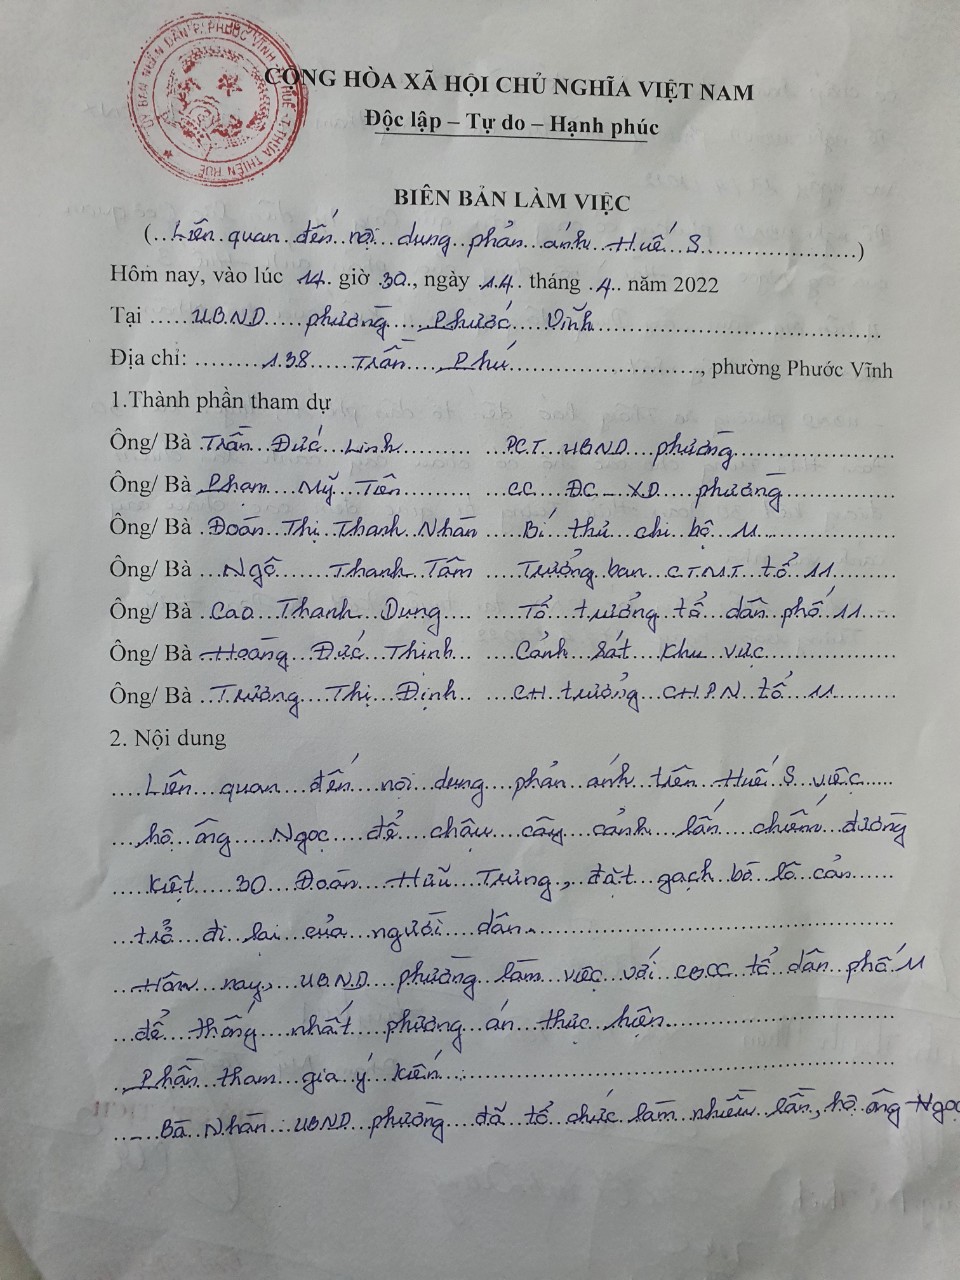 ỦY BAN NHÂN DÂN P. PHƯỚC VĨNH HUẾ - T. THỪA THIÊN HUẾ
CỘNG HÒA XÃ HỘI CHỦ NGHĨA VIỆT NAM
Độc lập – Tự do – Hạnh phúc
BIÊN BẢN LÀM VIỆC
(..Liên quan đến nội dung phản ánh Huế S..........)
Hôm nay, vào lúc 14 giờ 30, ngày 14 tháng 4 năm 2022
Tại ......UBND phường Phước Vĩnh..........
Địa chỉ: .........138 Trần Phú.........., phường Phước Vĩnh
1.Thành phần tham dự
Ông/ Bà Trần Đức Linh.......... PCT UBND phường..........
Ông/ Bà Phạm Mỹ Tiên.......... CC ĐC - XD phường..........
Ông/ Bà Đoàn Thị Thanh Nhàn Bí thư chi bộ 11..........
Ông/ Bà Ngô Thanh Tâm Trưởng ban CTMT tổ 11..........
Ông/ Bà Cao Thanh Dung.... Tổ trưởng tổ dân phố 11.....
Ông/ Bà Hoàng Đức Thịnh... Cảnh sát khu vực..........
Ông/ Bà Trương Thị Định CH trưởng CHPN tổ 11..........
2. Nội dung
....Liên quan đến nội dung phản ánh trên Huế S việc....
...hộ ông Ngọc để chậu cây cảnh lấn chiếm đường
.....kiệt 30 Đoàn Hữu Trưng, đặt gạch bờ lô cản......
...trở đi lại của người dân..........
..Hôm nay, UBND phường làm việc với CBCC tổ dân phố 11
...để thống nhất phương án thực hiện..........
..Phần tham gia ý kiến :..........
..- Bà Nhàn : UBND phường đã tổ chức làm nhiều lần, hộ ông Ngọc